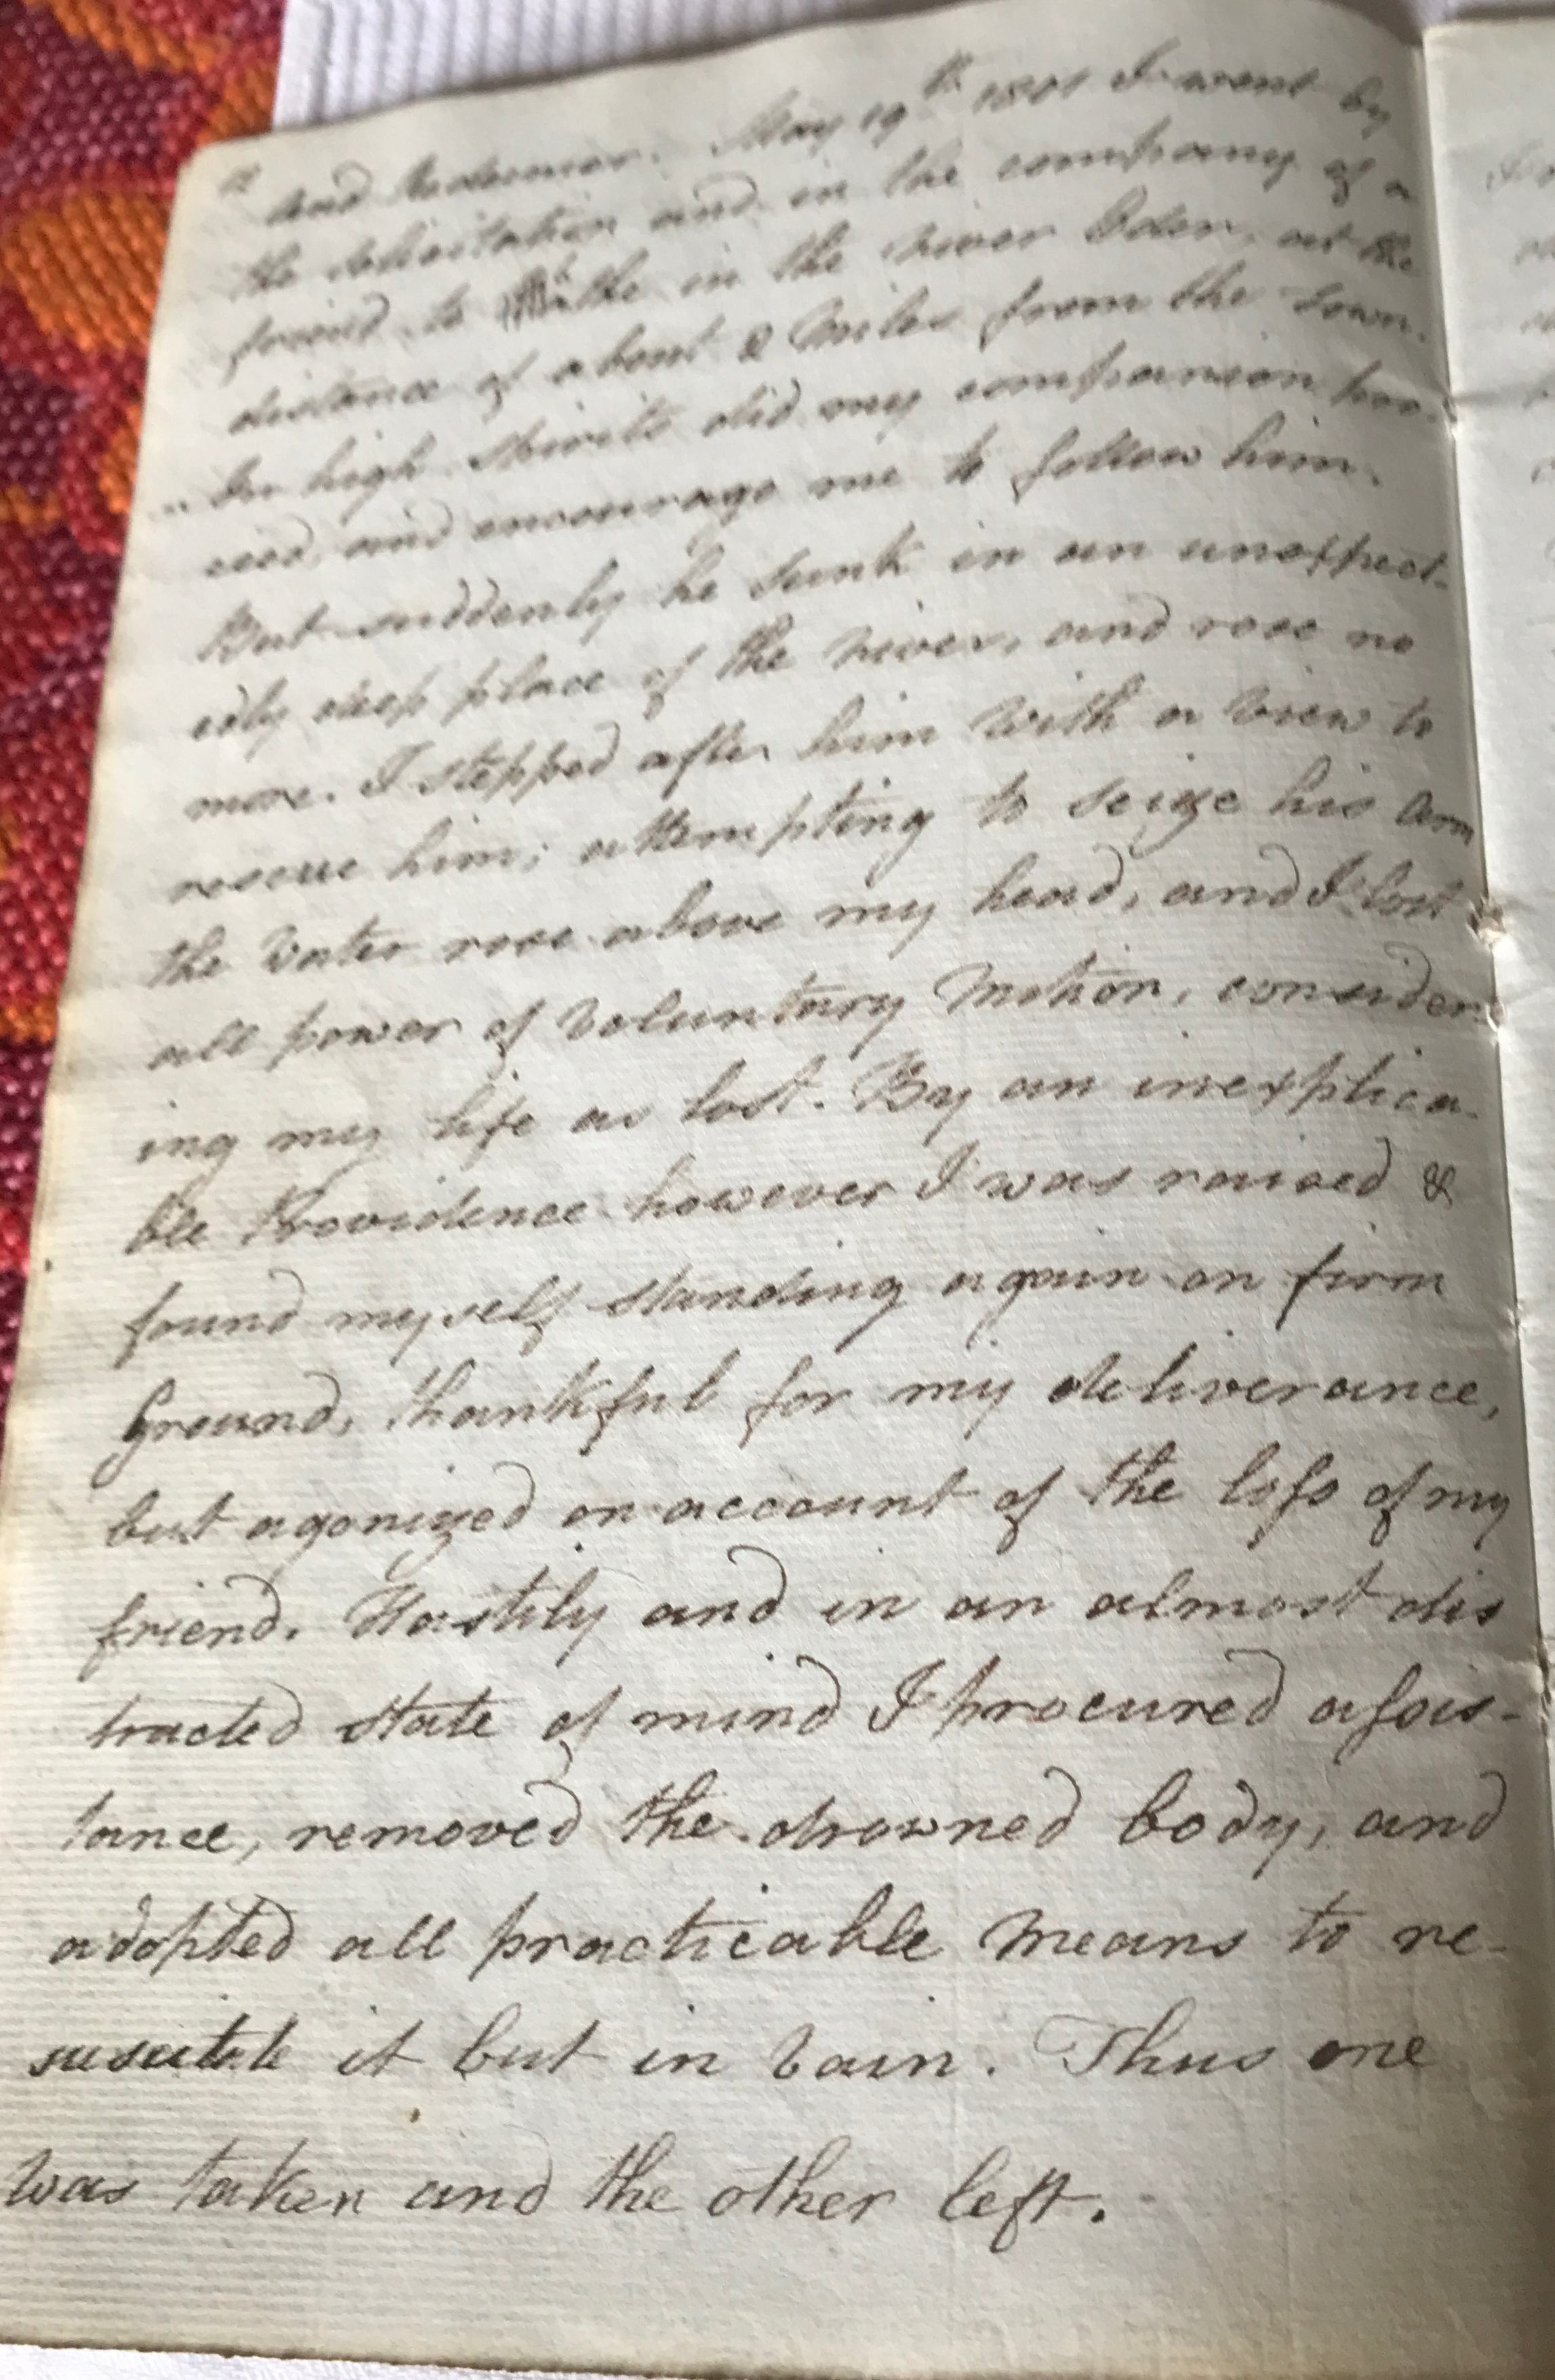 12
and Redeemer. May 19th 1801 I went by
the solicitation and in the company of a
friend to bathe in the river Eden, at the
distance of about 2 Miles from the town.
In high spirits did my companion pro-
ceed, and encourage me to follow him.
But suddenly he sunk in an unexpect-
edly deep place of the river, and rose no
more. I stepped after him with a view to
rescue him; attempting to seize his arm
the water rose above my head, and I lost
all power of voluntary Motion, consider-
ing my life as lost. By an inexplica-
ble Providence however I was raised &
found myself standing again on firm
Ground, thankful for my deliverance,
but agonized on account of the loss of my
friend. Hastily and in an almost dis
tracted state of mind I procured assis-
tance, removed the drowned body, and
adopted all practicable Means to re-
suscitate it but in vain. Thus one
was taken and the other left.